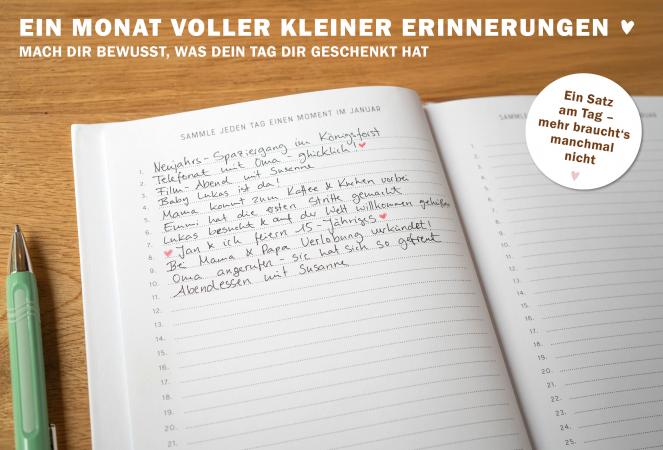 EIN MONAT VOLLER KLEINER ERINNERUNGEN ♥
MACH DIR BEWUSST, WAS DEIN TAG DIR GESCHENKT HAT
Ein Satz
am Tag –
mehr braucht's
manchmal
nicht
SAMMLE JEDEN TAG EINEN MOMENT IM JANUAR
1. Neujahrs-Spaziergang im Königsforst
2. Telefonat mit Oma - glücklich! ♥
3. Film-Abend mit Susanne
4. Baby Lukas ist da!
5. Mama kommt zum Kaffee & Kuchen vorbei
6. Emmi hat die ersten Schritte gemacht
7. Lukas besucht & auf der Welt willkommen geheißen
8. ♥ Jan & ich feiern 15-Jähriges ♥
9. Bei Mama & Papa Verlobung verkündet!
10. Oma angerufen - sie hat sich so gefreut
11. Abendessen mit Susanne
12.
13.
14.
15.
16.
17.
18.
19.
20.
21.
SAMMLE
1.
2.
3.
4.
5.
6.
7.
8.
9.
10.
11.
12.
13.
14.
15.
16.
17.
18.
19.
20.
21.
22.
23.
24.
25.